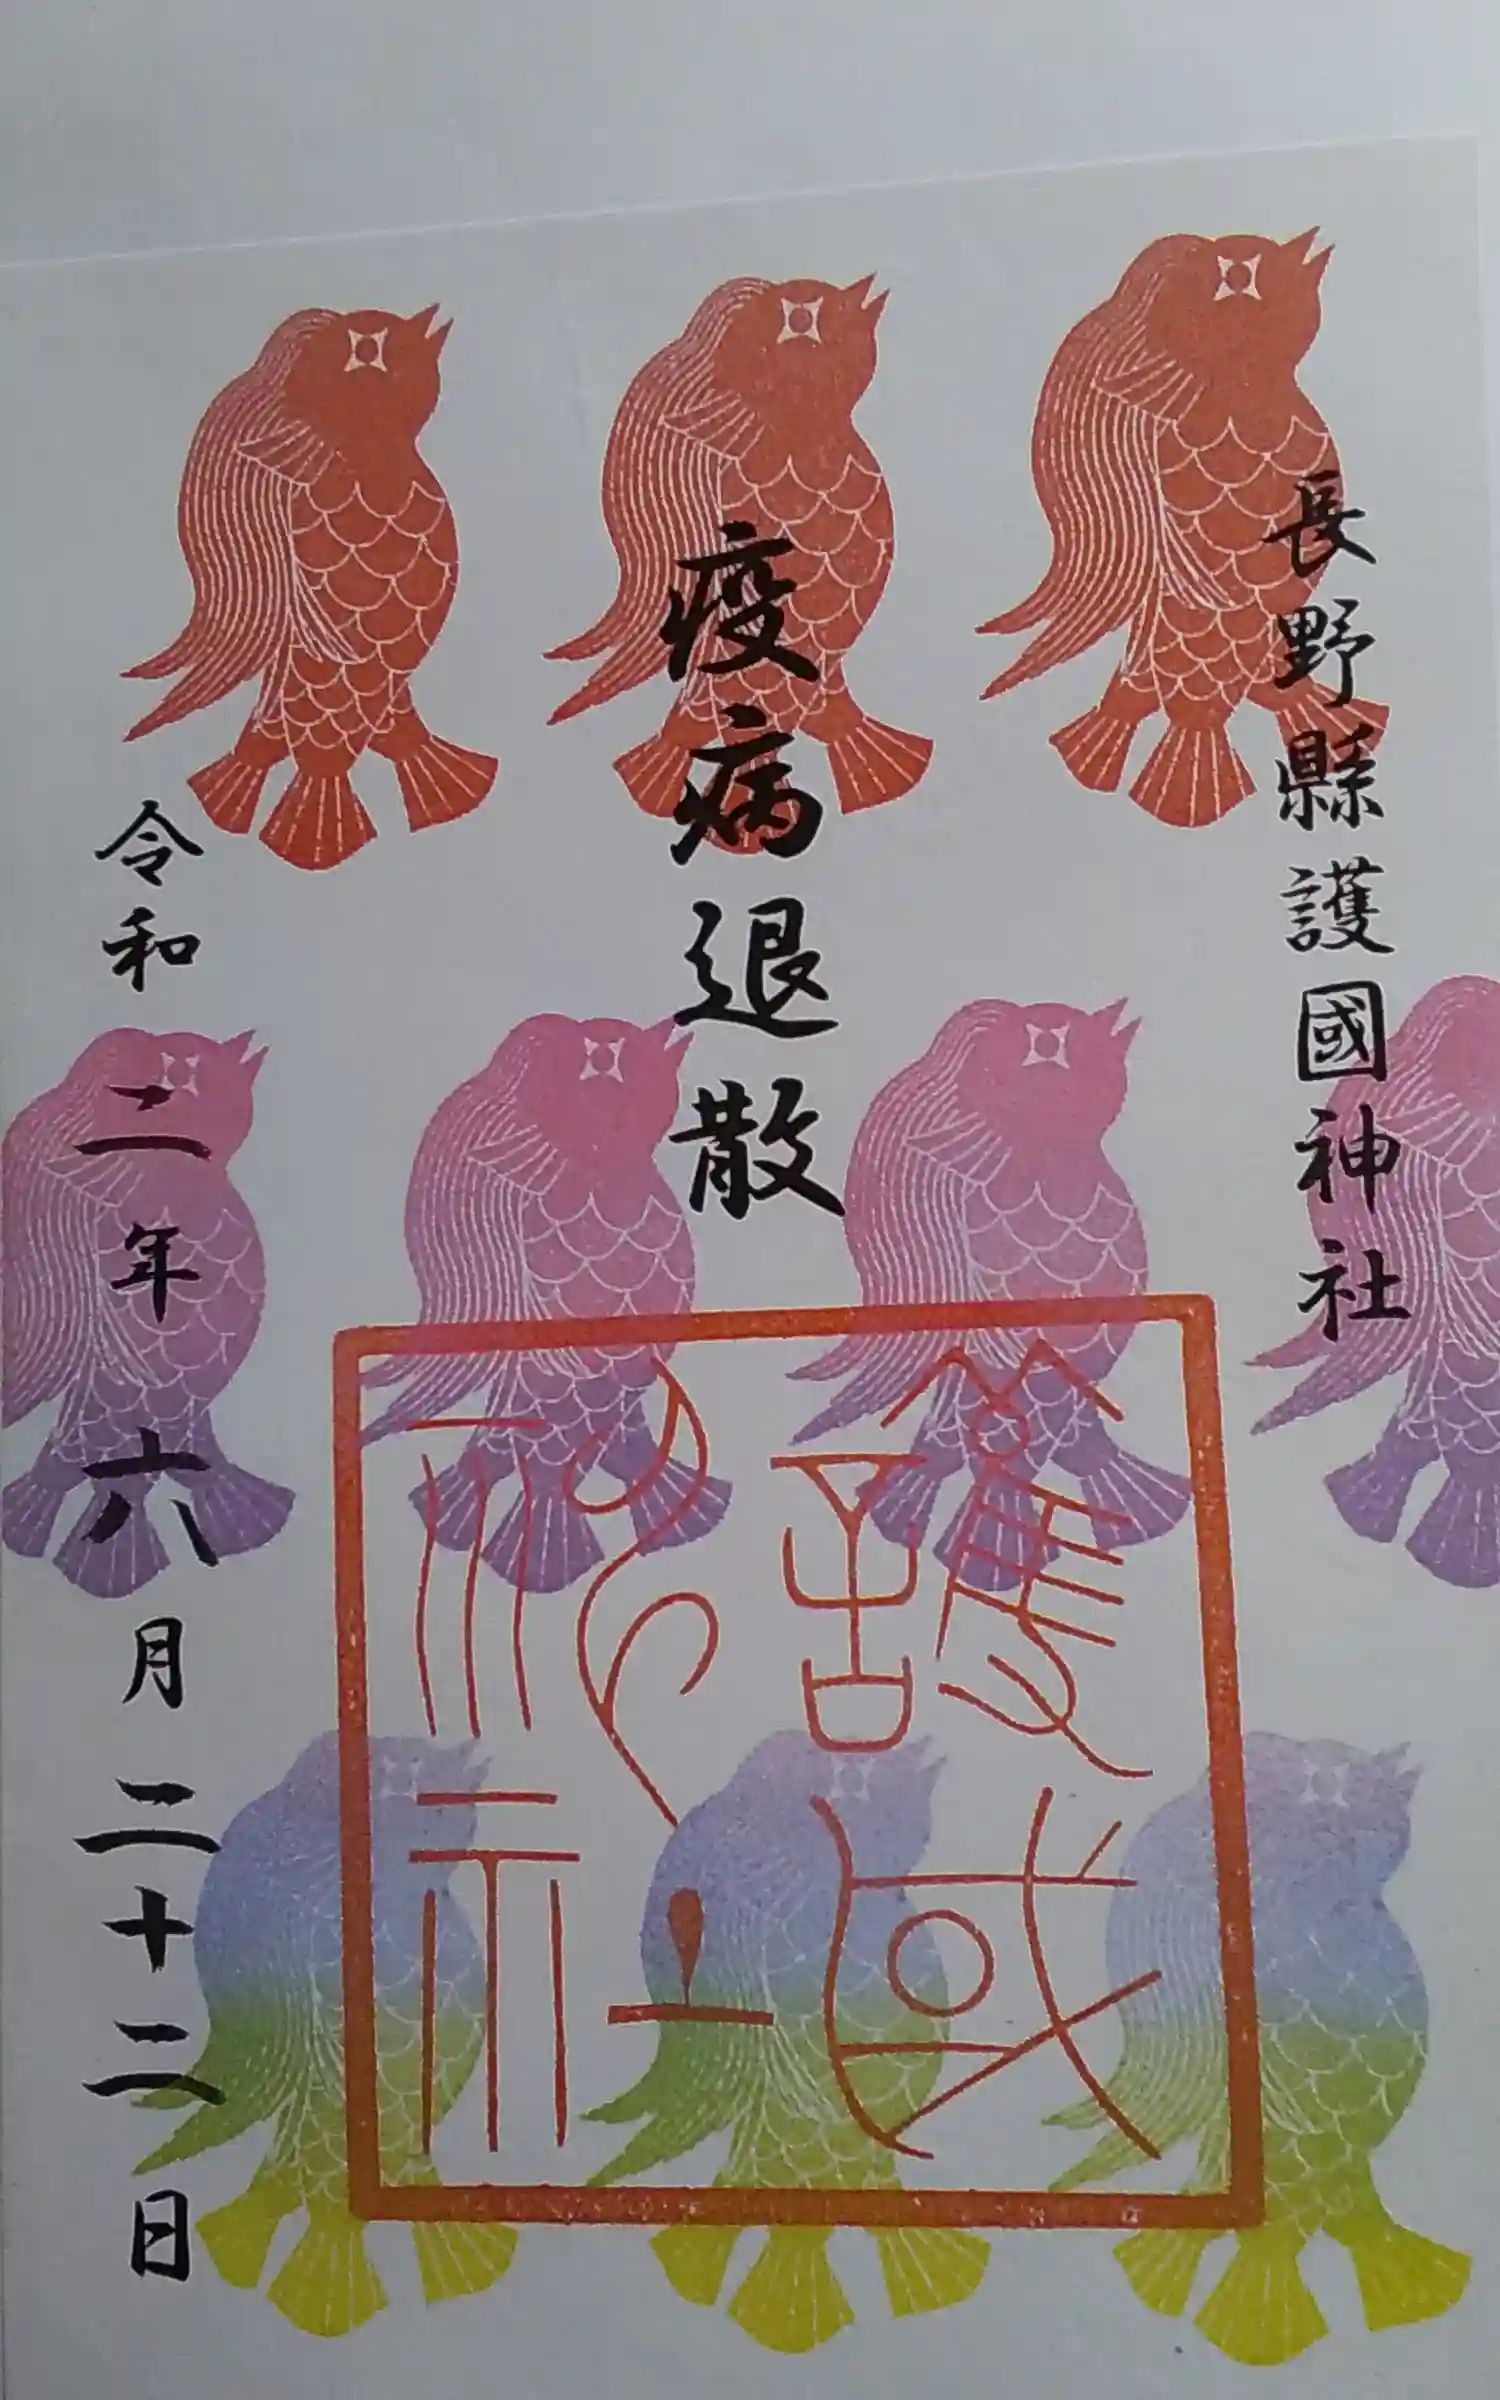 長野縣護國神社
疫病退散
令和二年六月二十二日
護國神社